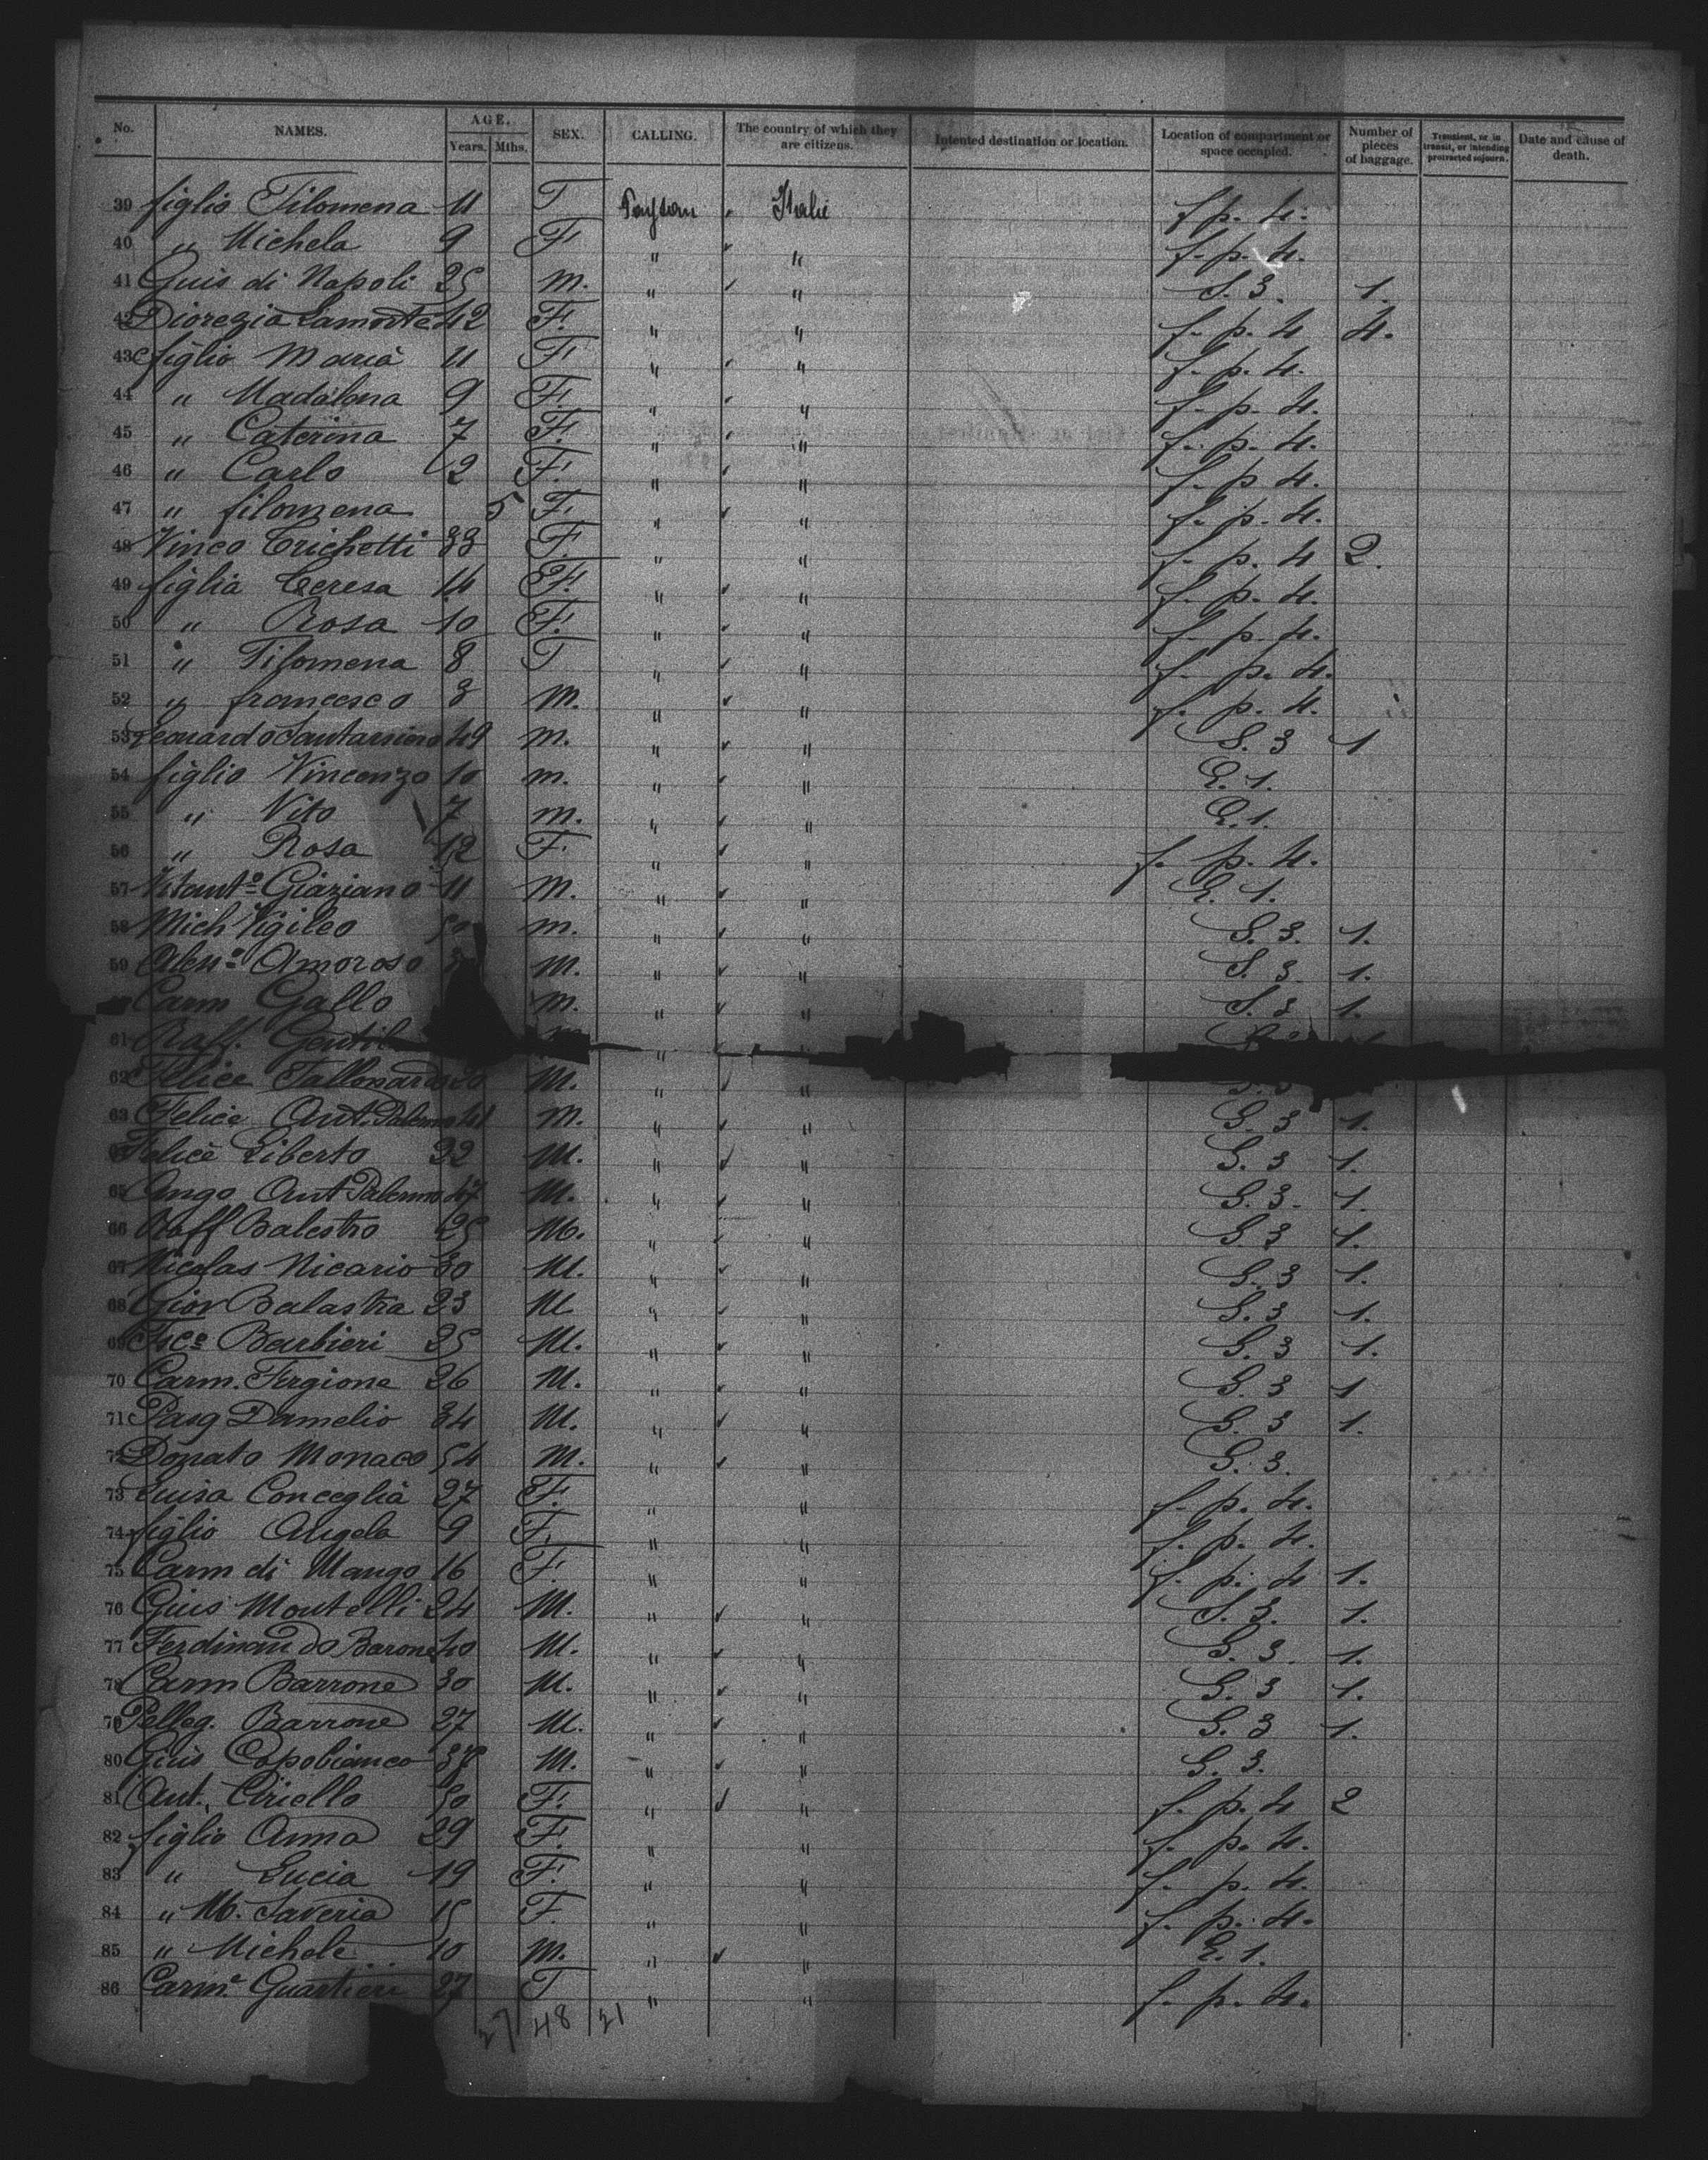 No. NAMES. AGE. Years. Mths. SEX. CALLING. The country of which they are citizens. Intented destination or location. Location of compartment or space occupied. Number of pieces of baggage. Transient, or in transit, or intending protracted sojourn. Date and cause of death.
39 figlio Filomena 11 F Paysan Italie f. p. 4.
40 " Michela 9 F. " " f. p. 4.
41 Guis di Napoli 25 m. " " S. 3. 1.
42 Lamorte 42 F. " " f. p. 4 4.
43 figlio Maria 11 F. " " f. p. 4.
44 " Madalena 9 F. " " f. p. 4.
45 " Caterina 7 F. " " f. p. 4.
46 " Carlo 2 F. " " f. p. 4.
47 " filomena 5 F. " " f. p. 4.
48 Vinco Crichetti 33 F. " " f. p. 4 2.
49 figlia Teresa 14 F. " " f. p. 4.
50 " Rosa 10 F. " " f. p. 4.
51 " Filomena 8 F " " f. p. 4.
52 " francesco 3 m. " " f. p. 4.
53 Leonardo 49 m. " " S. 3 1
54 figlio Vincenzo 10 m. " " E. 1.
55 " Vito 7 m. " " E. 1.
56 " Rosa 12 F. " " f. p. 4.
57 Graziano 11 m. " " E. 1.
58 Mich Vigileo 50 m. " " S. 3. 1.
59 Amoroso m. " " S. 3. 1.
Carm Gallo m. " " S. 3 1.
61 Raff. " "
62 Felice Tallonardo m. " "
63 Felice Ant. Palermo 41 m. " " S. 3 1.
Felice Liberto 22 M. " " S. 3 1.
65 Ango Ant Palermo 47 M. " " S. 3. 1.
66 Raff Balestro 25 M. " " S. 3 1.
67 Nicolas Nicario 30 M. " " S. 3 1.
68 Giov Balastra 23 M " " S. 3 1.
69 Fsco Barbieri 25 M. " " S. 3 1.
70 Carm. Fergione 26 M. " " S. 3 1
71 Pasq Damelio 34 M. " " S. 3 1.
72 Donato Monaco 54 M. " " S. 3.
73 Luisa Conceglia 27 F. " " f. p. 4.
74 figlio Angela 9 F. " " f. p. 4.
75 Carm di Mango 16 F. " " f. p. 4 1.
76 Guis Montelli 24 M. " " S. 3. 1.
77 Ferdinando Barone 40 M. " " S. 3. 1.
78 Carm Barrone 30 M. " " S. 3 1.
79 Pelleg. Barrone 27 M. " " S. 3 1.
80 Guis Capobianco M. " " S. 3.
81 Ant. Ciriello 50 F. " " f. p. 4 2
82 figlio Anna 29 F. " " f. p. 4.
83 " Lucia 19 F. " " f. p. 4.
84 " M. Saveria 15 F. " " f. p. 4.
85 " Michele 10 m. " " E. 1.
86 Carm. Guartieri 27 F " " f. p. 4.
27 48 21